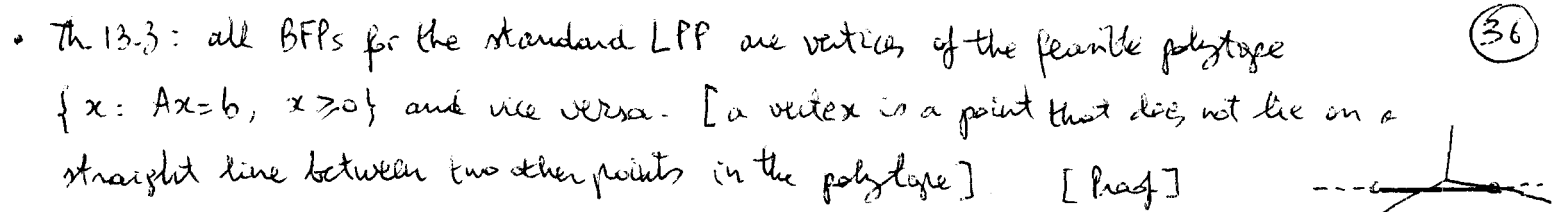 • Th. 13.3: all BFPs for the standard LPP are vertices of the feasible polytope (36)
{x: Ax=b, x⩾0} and vice versa. [a vertex is a point that does not lie on a
straight line between two other points in the polytope] [Proof]